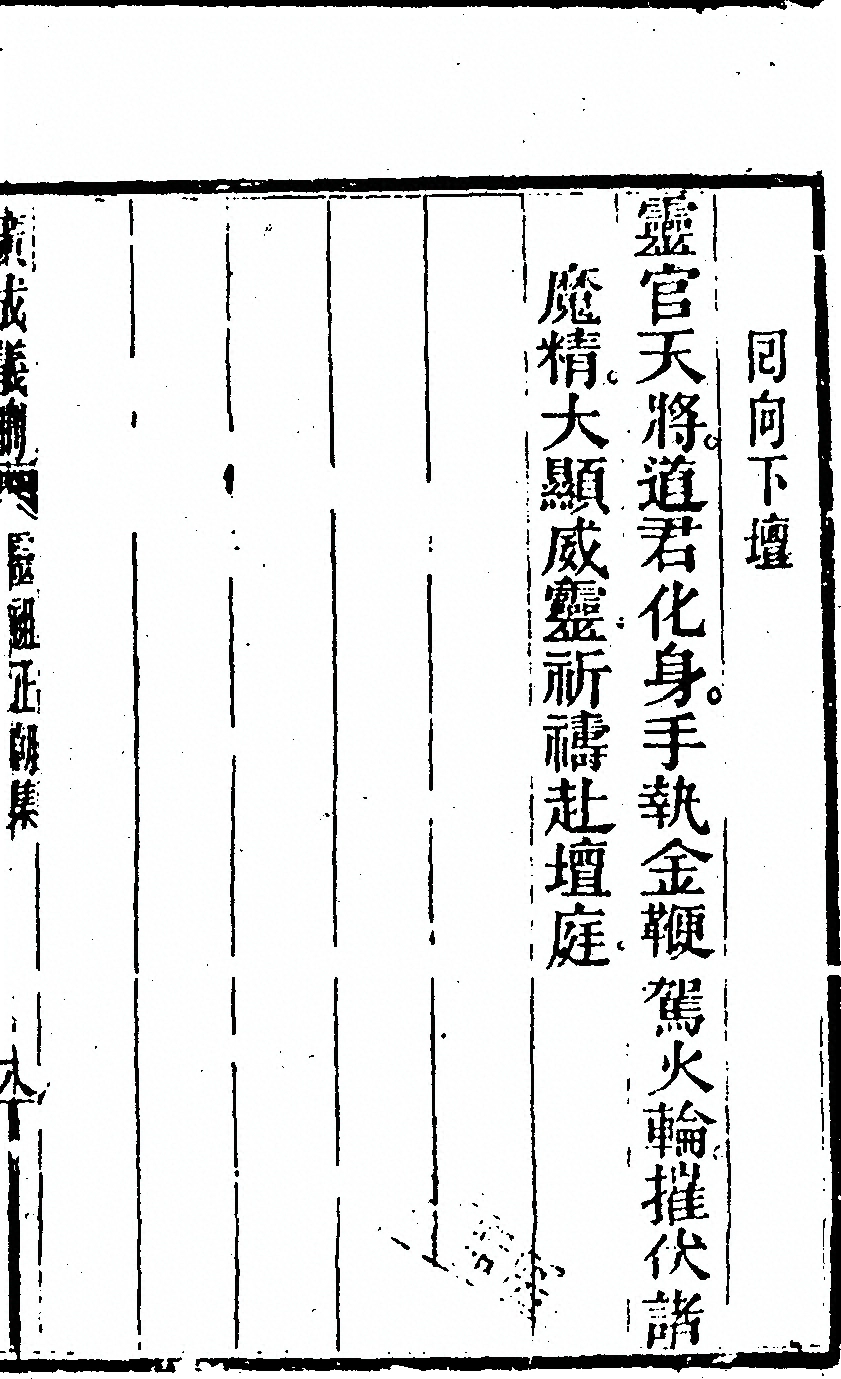 囘向下壇
靈官天將。道君化身。手執金鞭駕火輪。摧伏諸
魔精。大顯威靈。祈禱赴壇庭。
廣成儀制 正朝集